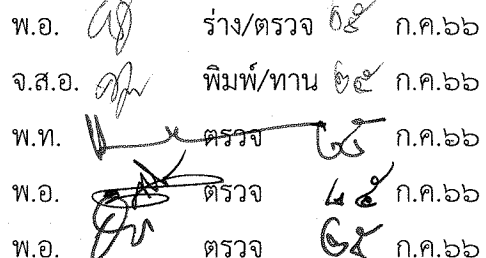 พ.อ. ร่าง/ตรวจ ๒๕ ก.ค.๖๖
จ.ส.อ. พิมพ์/ทาน ๒๕ ก.ค.๖๖
พ.ท. ตรวจ ๒๕ ก.ค.๖๖
พ.อ. ตรวจ ๒๕ ก.ค.๖๖
พ.อ. ตรวจ ๒๕ ก.ค.๖๖